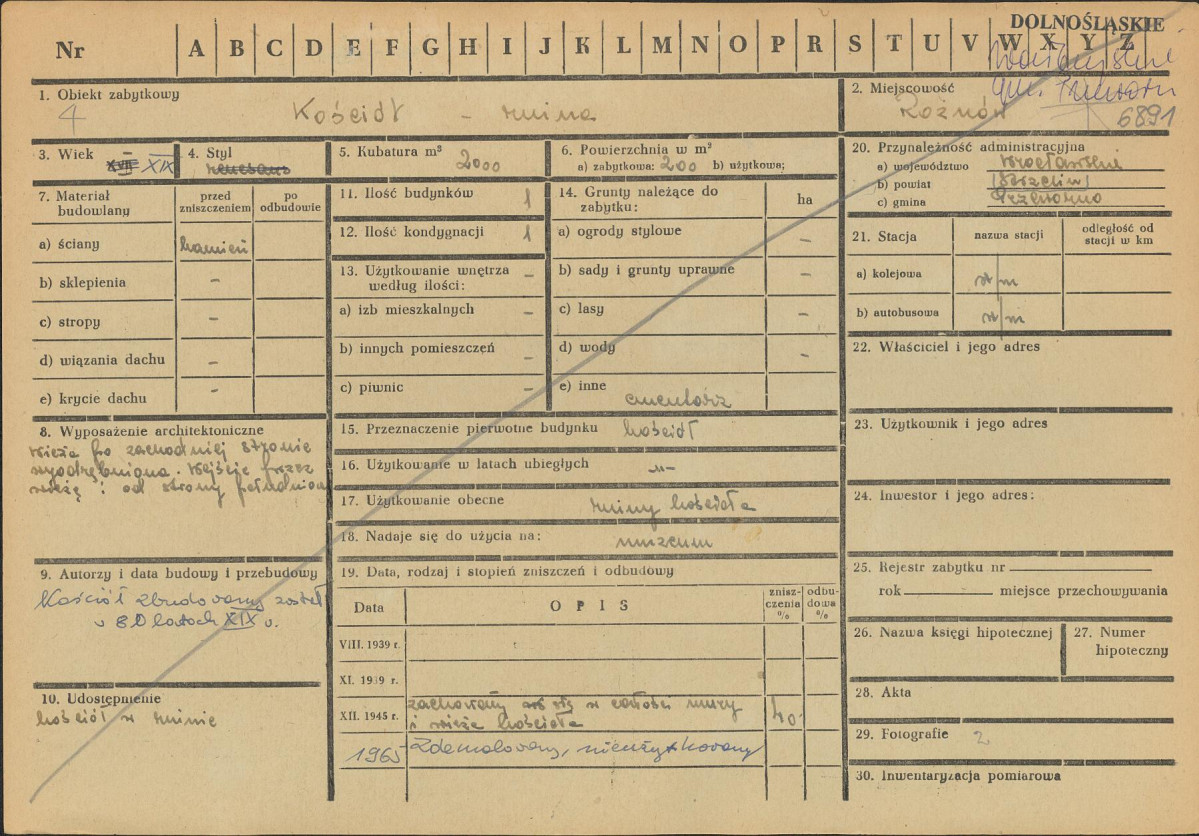 DOLNOŚLĄSKIE
Nr A B C D E F G H I J K L M N O P R S T U V W X Y Z
gm.
6891
1. Obiekt zabytkowy
4 Kościół - ruina
2. Miejscowość
Rożnów
3. Wiek XVII XIX
4. Styl renesans
5. Kubatura m³ 2000
6. Powierzchnia w m²
a) zabytkowa: 200 b) użytkowa:
20. Przynależność administracyjna
a) województwo Wrocławskie
b) powiat Strzelin
c) gmina Przeworno
7. Materiał budowlany
przed zniszczeniem
po odbudowie
a) ściany kamień
b) sklepienia -
c) stropy -
d) wiązania dachu -
e) krycie dachu -
11. Ilość budynków 1
12. Ilość kondygnacji 1
13. Użytkowanie wnętrza według ilości: -
a) izb mieszkalnych -
b) innych pomieszczeń -
c) piwnic -
14. Grunty należące do zabytku: ha
a) ogrody stylowe -
b) sady i grunty uprawne -
c) lasy -
d) wody -
e) inne cmentarz
21. Stacja
nazwa stacji
odległość od stacji w km
a) kolejowa
b) autobusowa
22. Właściciel i jego adres
8. Wyposażenie architektoniczne
wieża po zachodniej stronie
wyodrębniona. Wejście przez
wieżę i od strony południow
15. Przeznaczenie pierwotne budynku kościół
16. Użytkowanie w latach ubiegłych -"-
17. Użytkowanie obecne ruiny kościoła
18. Nadaje się do użycia na: muzeum
23. Użytkownik i jego adres
24. Inwestor i jego adres:
9. Autorzy i data budowy i przebudowy
Kościół zbudowany został
w 80 latach XIX w.
19. Data, rodzaj i stopień zniszczeń i odbudowy
Data
OPIS
znisz- czenia %
odbu- dowa %
VIII. 1939 r.
XI. 1939 r.
XII. 1945 r. zachowały się w całości mury
i wieża kościoła 40
1965 Zdemolowany, nieużytkowany
25. Rejestr zabytku nr
rok miejsce przechowywania
26. Nazwa księgi hipotecznej
27. Numer hipoteczny
10. Udostępnienie
kościół w ruinie
28. Akta
29. Fotografie 2
30. Inwentaryzacja pomiarowa